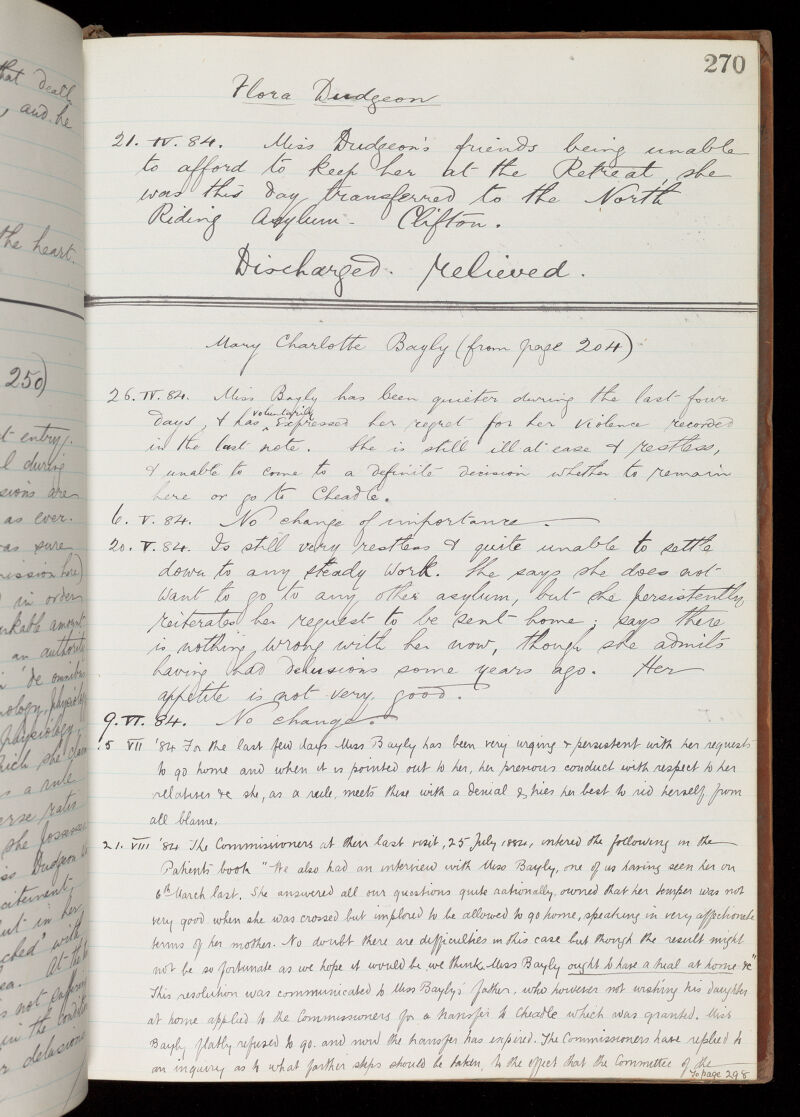 270
Flora Dudgeon
21. IV. 84. Miss Dudgeon's friends being unable
to afford to keep her at the Retreat, she
was this day transferred to the North
Riding Asylum - Clifton.
Discharged. relieved.
Mary Charlotte Bayly (from page 204)
26. IV. 84. Miss Bayly has been quieter during the last four
voluntarily
days, & has ^ expressed her regret for her violence recorded
in the last note. She is still ill at ease & restless,
& unable to come to a definite decision whether to remain
here or go to Cheadle.
6. V. 84. No change of importance.
20. V. 84. Is still very restless & quite unable to settle
down to any steady work. She says she does not
want to go to any other asylum, but she persistently
reiterates her request to be sent home; says there
is nothing wrong with her now, though she admits
having had delusions some years ago. Her
appetite is not very good.
9. VI. 84. No change.
5 VII '84 For the last few days Miss Bayly has been very urging & persistent with her requests
to go home and when it is pointed out to her, her previous conduct with respect to her
relatives &c she, as a rule, meets these with a denial & tries her best to rid herself from
all blame.
21. VIII '84 The Commissioners at their last visit, 25 July 1884, entered the following in the
Patients book "We also had an interview with Miss Bayly, one of us having seen her on
6th March last. She answered all our questions quite rationally, owned that her temper was not
very good when she was crossed but implored to be allowed to go home, speaking in very affectionate
terms of her mother. No doubt there are difficulties in this case but though the result might
not be so fortunate as we hope it would be we think Miss Bayly ought to have a trial at home &c"
This resolution was communicated to Miss Bayly's father, who however not wishing his daughter
at home applied to the Commissioners for a transfer to Cheadle which was granted. Miss
Bayly flatly refused to go and now the transfer has expired. The Commissioners have replied to
an inquiry as to what further steps should be taken, to the effect that the Committee of the
to page 298
that death
, and he
the heart.
250)
t entry.
l during
sions are
as ever.
was sure
mission here)
in order
rkable amount
an authority
'de omnibus
ology, physiology